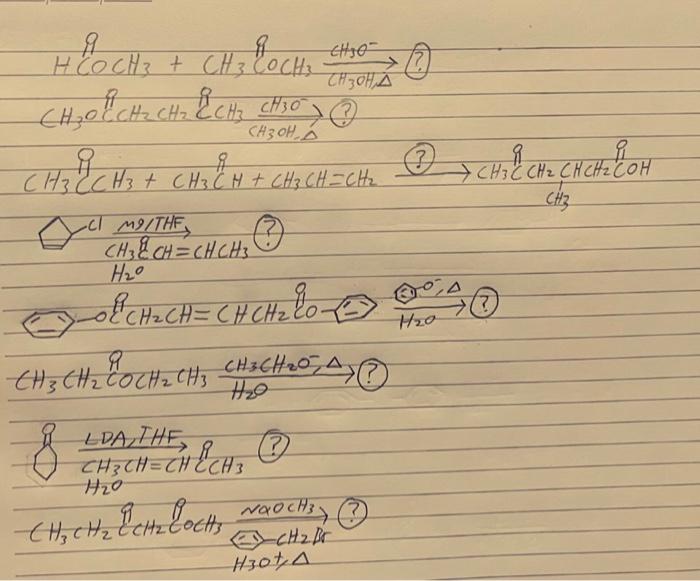 O
HCOCH3 + CH3COCH3 CH3O- CH3OH,Δ → ?
CH3OCCH2CH2CCH3 CH3O- CH3OH,Δ → ?
CH3CCH3 + CH3CH + CH3CH=CH2 ? → CH3CCH2CHCH2COH
CH3
Cl Mg/THF, ?
CH3CCH=CHCH3
H2O
OCCH2CH=CHCH2CO O-,Δ H2O → ?
CH3CH2COCH2CH3 CH3CH2O-,Δ H2O → ?
O LDA,THF ?
CH3CH=CHCCH3
H2O
CH3CH2CCH2COCH3 NaOCH3 → ?
CH2Br
H3O+,Δ